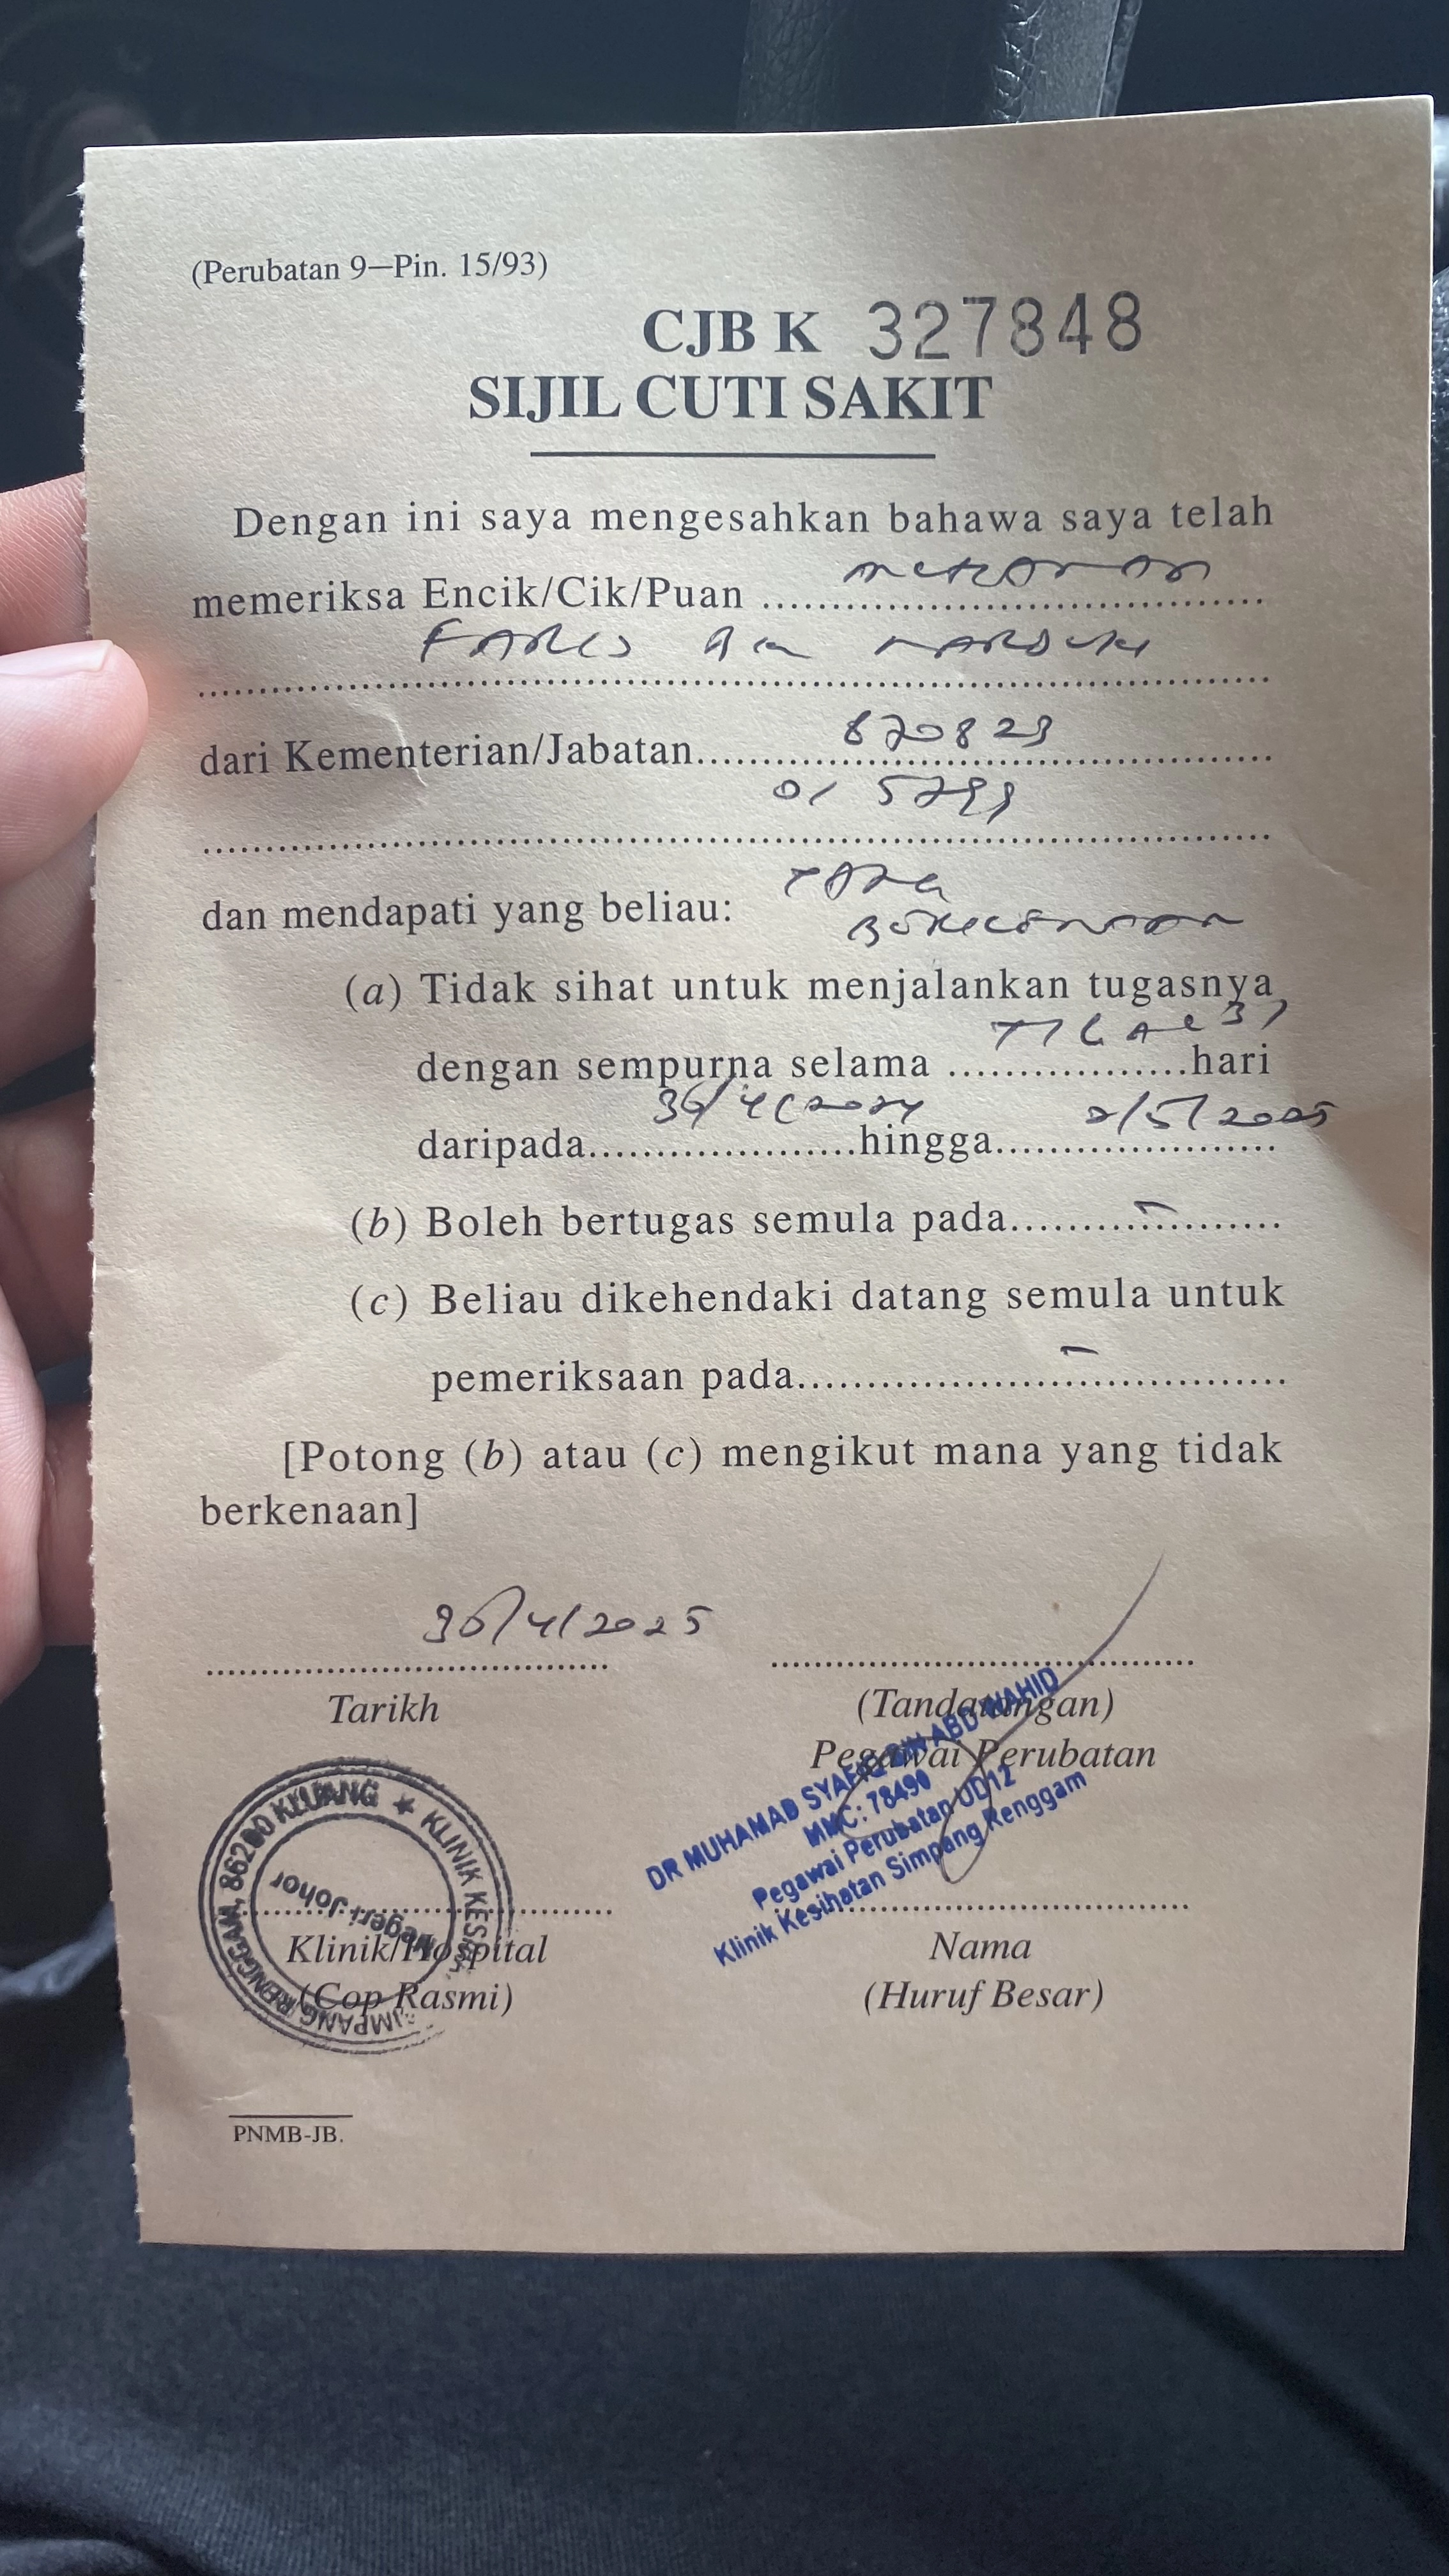 (Perubatan 9—Pin. 15/93)
CJB K 327848
SIJIL CUTI SAKIT
Dengan ini saya mengesahkan bahawa saya telah
memeriksa Encik/Cik/Puan ........................
FARIS Bin MARDUKI
dari Kementerian/Jabatan........................ 870823
01 5799
dan mendapati yang beliau:
(a) Tidak sihat untuk menjalankan tugasnya
dengan sempurna selama ........................hari
daripada........................hingga........................ 2/5/2025
(b) Boleh bertugas semula pada........................ –
(c) Beliau dikehendaki datang semula untuk
pemeriksaan pada........................ –
[Potong (b) atau (c) mengikut mana yang tidak
berkenaan]
30/4/2025
Tarikh
(Tandatangan)
Pegawai Perubatan
DR MUHAMAD SYAFIQ BIN ABD WAHID
MMC: 78490
Pegawai Perubatan UD12
Klinik Kesihatan Simpang Renggam
KLINIK KESIHATAN SIMPANG RENGGAM, 86200 KLUANG ★
Negeri Johor
Klinik/Hospital
(Cop Rasmi)
Nama
(Huruf Besar)
PNMB-JB.